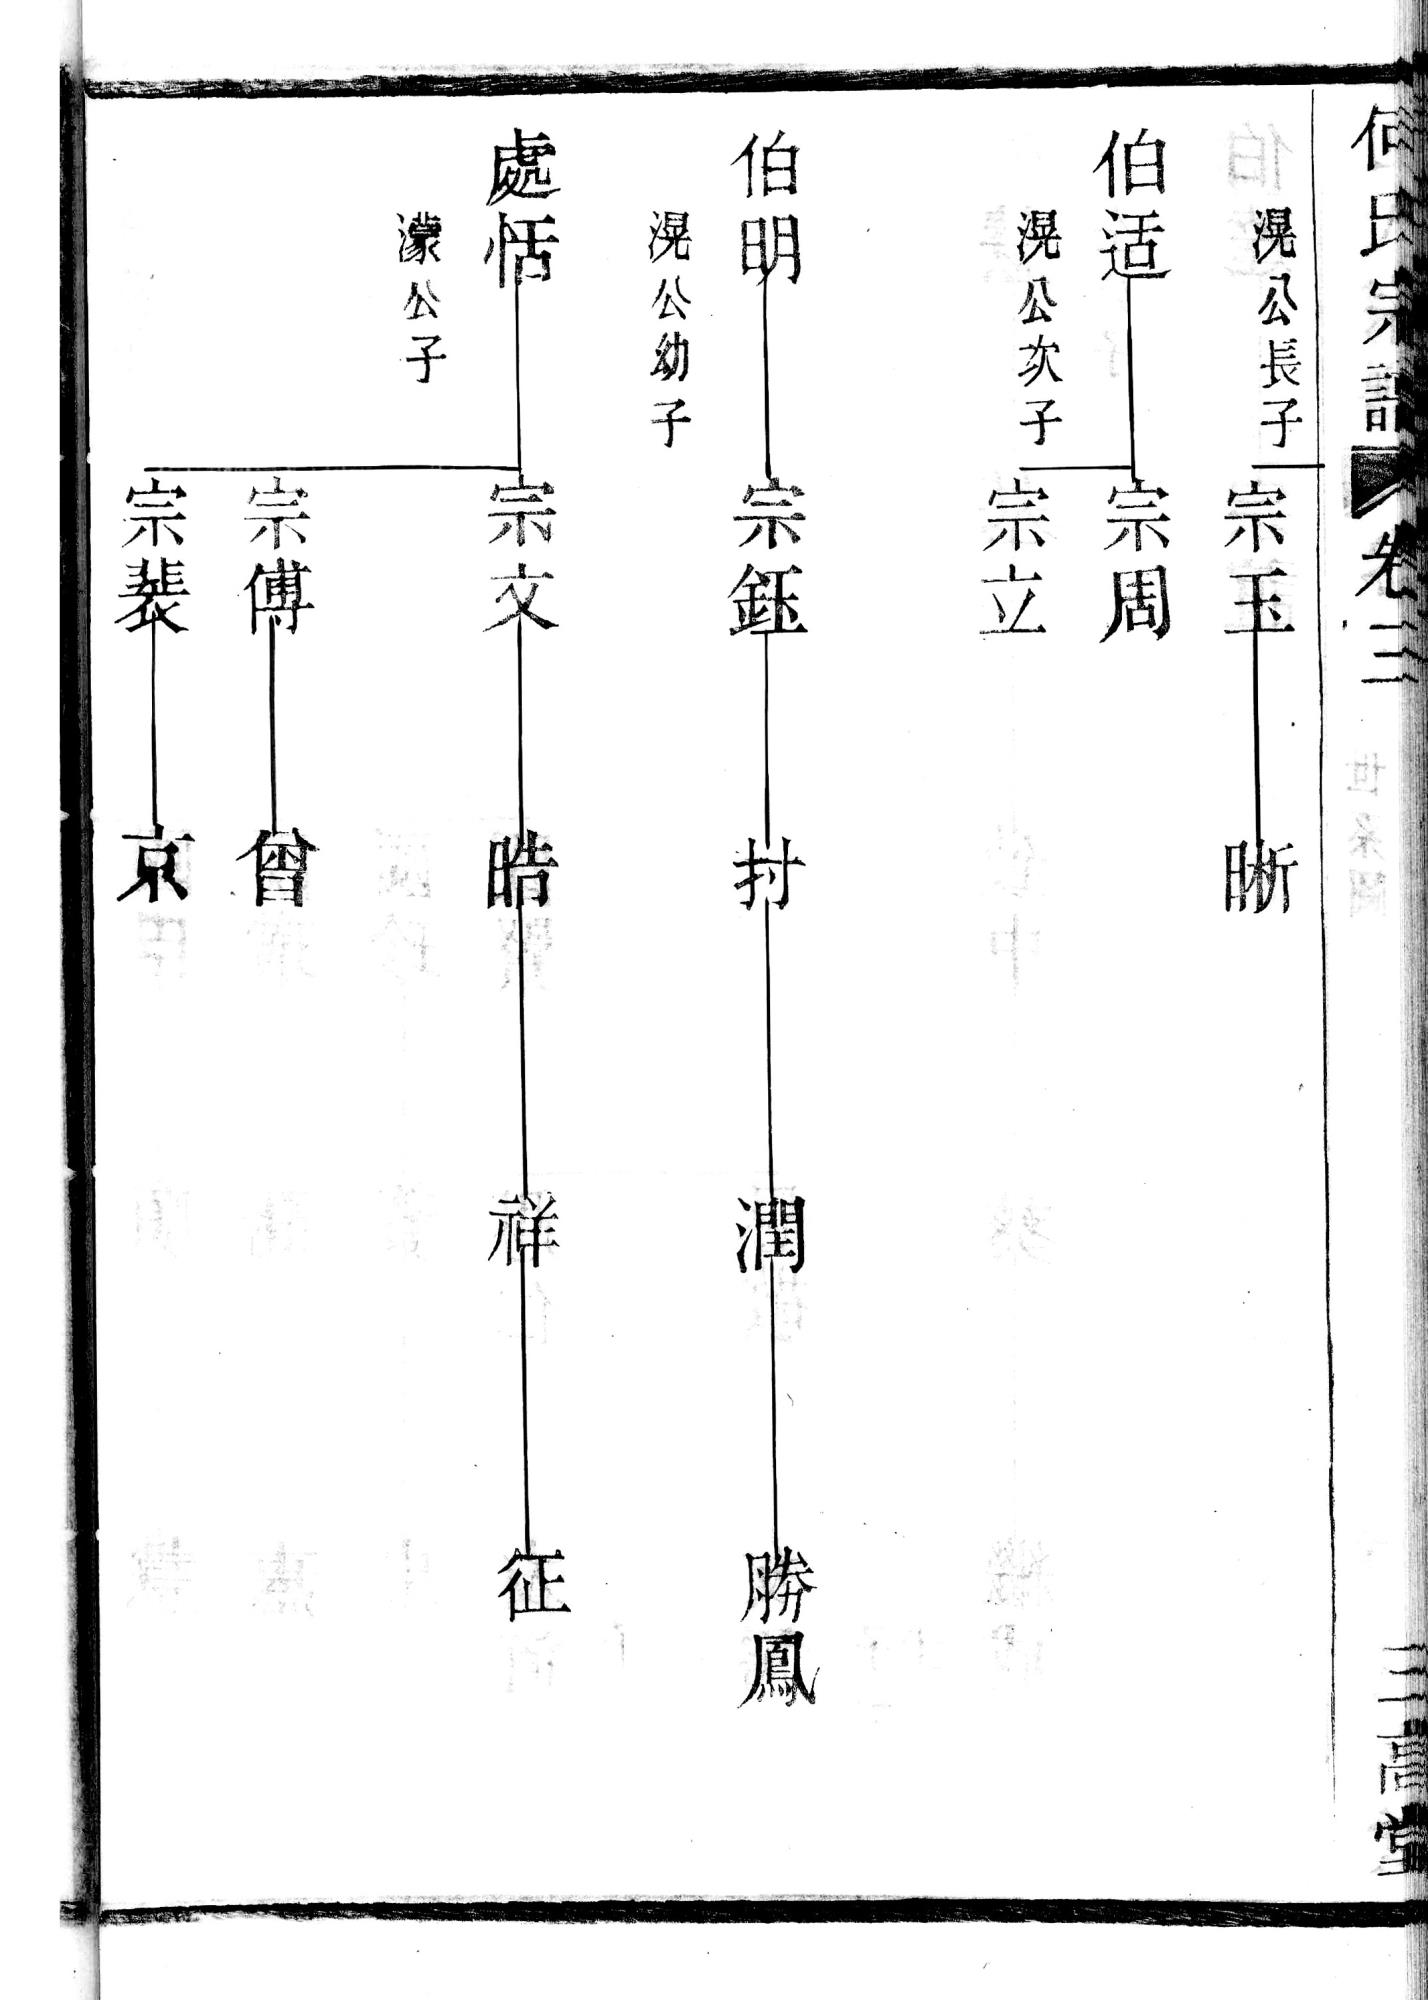 何氏宗譜
卷三
世系圖
三高堂
滉公長子
宗玉
晣
伯适
滉公次子
宗周
宗立
伯明
滉公幼子
宗鈺
封
潤
勝鳳
處恬
濛公子
宗文
晧
祥
征
宗傅
曾
宗裴
京